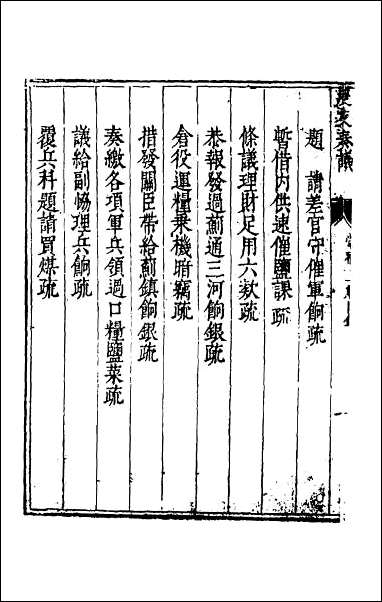 題請差官守催軍餉疏
暫借内供速催鹽課疏
條議理財足用六款疏
恭報發過薊通三河餉銀疏
倉役運糧乗機暗竊疏
措發關臣帶給薊鎮餉銀疏
奏繳各項軍兵領過口糧鹽菜疏
議給副協理兵餉疏
覆兵科題請買煤疏